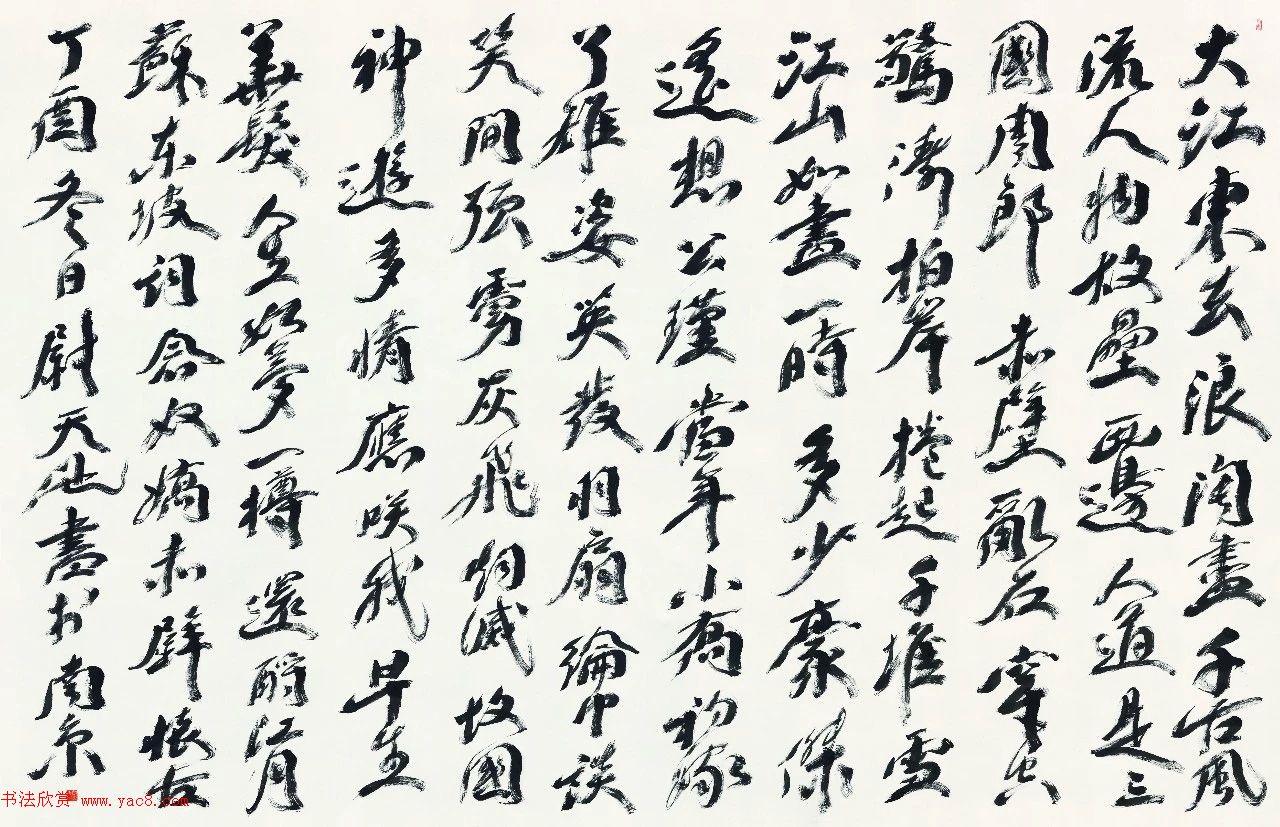 大江東去浪淘盡千古風
流人物故壘西邊人道是三
國周郎赤壁亂石穿空
驚濤拍岸捲起千堆雪
江山如畫一時多少豪傑
遙想公瑾當年小喬初嫁
了雄姿英發羽扇綸巾談
笑間強虜灰飛煙滅故國
神遊多情應咲我早生
華髮人生如夢一樽還酹江月
蘇東坡詞念奴嬌赤壁懷古
丁酉冬日尉天池書於南京
书法欣赏 www.yac8.com